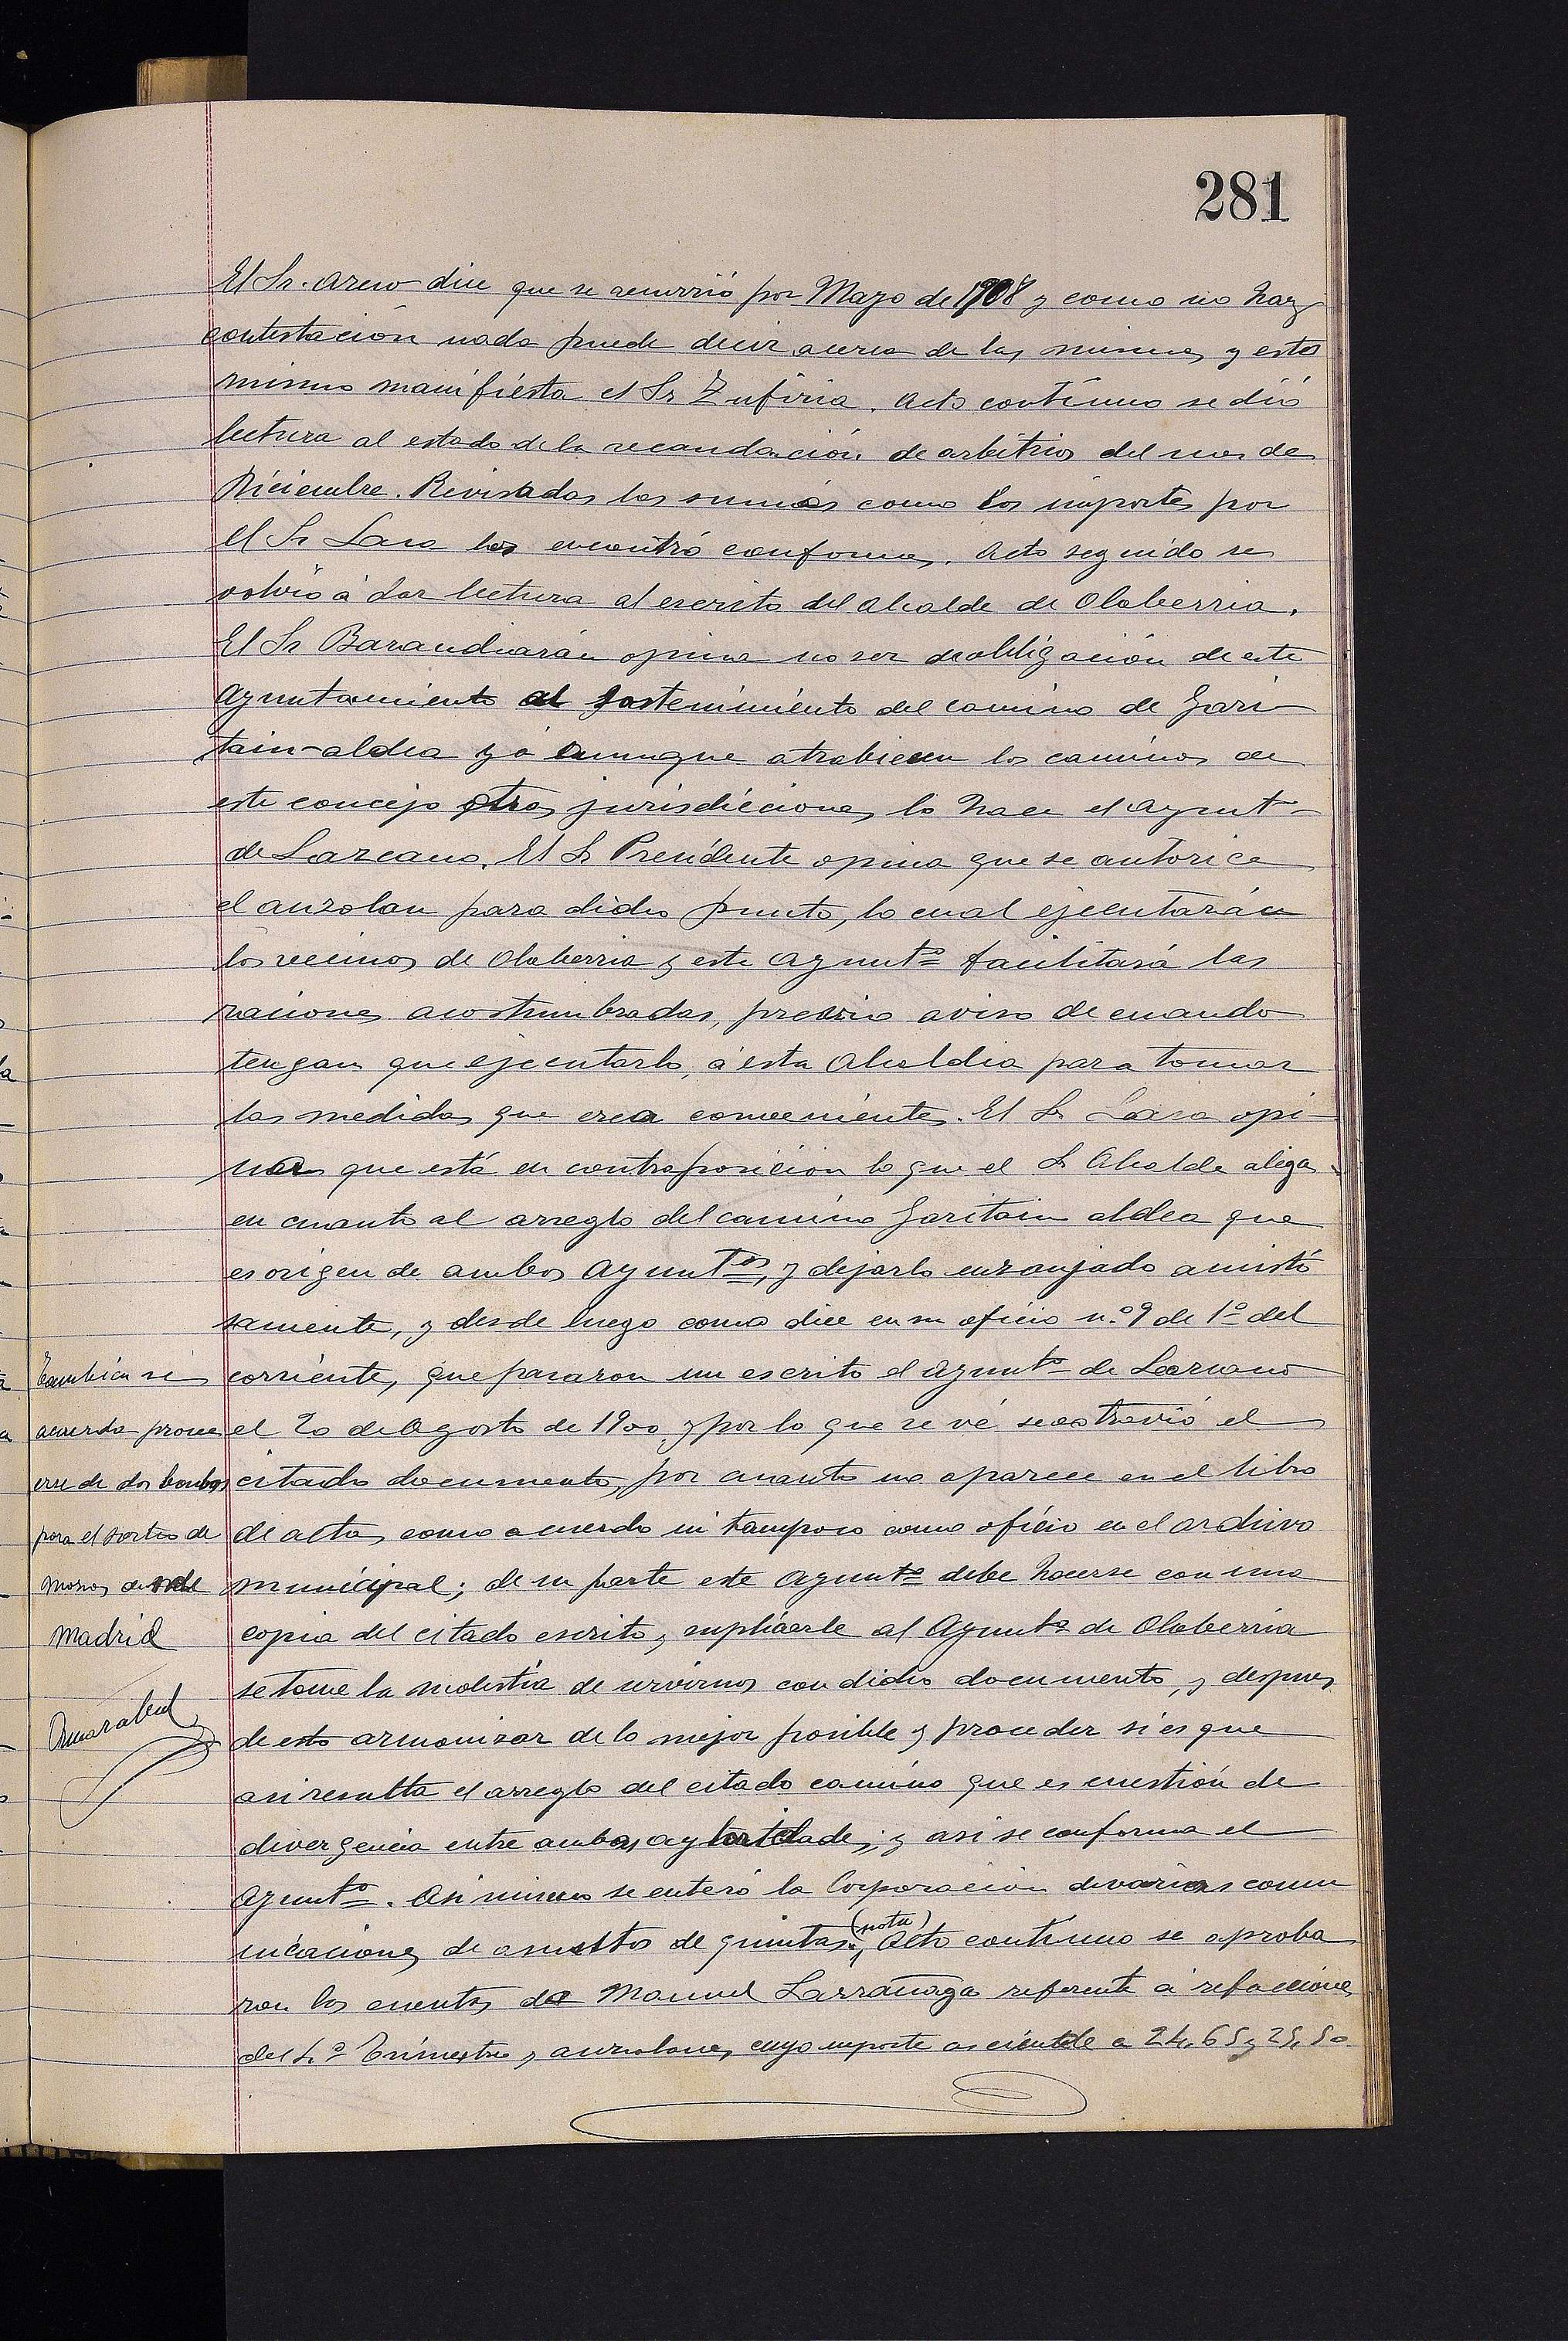 281
El Sr. Arcso dice que se recurrió por Mayo de 1908 y como no hay
contestación nada puede decir acerca de las mismas y esto
mismo manifiesta el Sr Zufiria. Acto contínuo se dió
lectura al estado de la recaudación de arbitrios del mes de
Diciembre. Revisadas las sumas como los importes por
el Sr Lasa los encontró conformes. Acto seguido se
volvió á dar lectura al escrito del Alcalde de Olaberria.
El Sr Barandiarán opina no ser de obligación de este
Ayuntamiento al sostenimiento del camino de Gari-
tain-aldea y ó aunque atrabiesen los caminos de
este concejo otras jurisdicciones lo hace el Ayuntº
de Lazcano. El Sr Presidente opina que se autorice
el auzolan para dicho punto, lo cual ejecutarán
los vecinos de Olaberria y este Ayuntº facilitará las
raciones acostumbradas, previo aviso de cuando
tengan que ejecutarlo, á esta Alcaldia para tomar
las medidas que crea conveniente. El Sr Lasa opi-
na que está en contraposición lo que el Sr Alcalde alega
en cuanto al arreglo del camino Garitain aldea que
es origen de ambos Ayuntos, y dejarlo enzanjado amistó
samente, y desde luego como dice en su oficio n.º 9 de 1º del
corriente, que pasaron un escrito el Ayuntº de Lazcano
el 20 de Agosto de 1900 y por lo que se vé se estravió el
citado documento, por cuanto no aparece en el libro
de actas como acuerdo ni tampoco como oficio en el archivo
municipal; de su parte este Ayuntº debe hacerse con una
copia del citado escrito, y suplicarle al Ayuntº de Olaberria
se tome la molestia de servirnos con dicho documento, y despues
de esto armonizar de lo mejor posible y proceder si es que
asi resulta el arreglo del citado camino que es cuestión de
divergencia entre ambas; y asi se conforma el
Ayuntº. Asi mismo se enteró la Corporación de varias comu
nicaciones de asuntos de quintas. (nota) Acto contínuo se aproba
ron las cuentas de Manuel Larrañaga referente á refacciones
del 4º Trimestre y auzolanes, cuyo importe asciende a 24,65 y 25,50
También se
acuerda prove
erse de dos bombos
para el sorteo de
mozos desde
Madrid